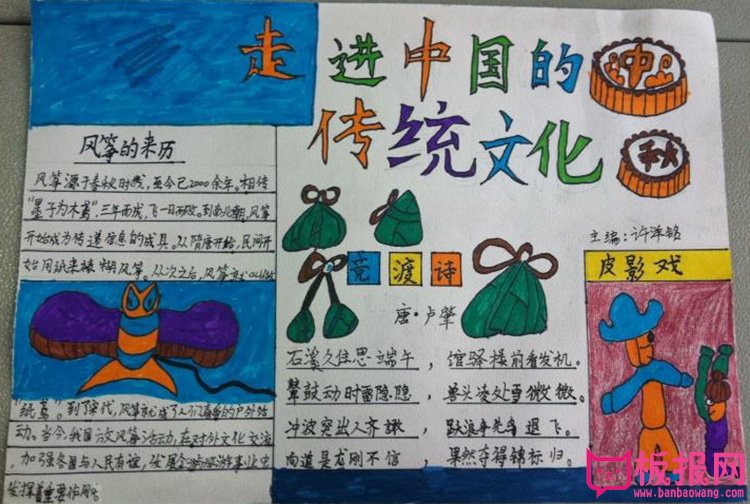 走进中国的
传统文化
中
秋
风筝的来历
风筝源于春秋时代，至今已2000余年。相传
"墨子为木鸢"，三年而成，飞一日而败。到南北朝，风筝
开始成为传递信息的工具。从隋唐开始，民间开
始用纸来裱糊风筝。从次之后，风筝
"纸鸢"。到了宋代，风筝成了人们喜爱的户外活
动。当今，我国 风筝活动，在对外文化交流，
加强各国与人民友谊，发展
发挥着重要作用。
主编：许泽铭
竞渡诗
唐·卢肇
石溪久住思端午，馆驿楼前看发机。
鼙鼓动时雷隐隐，兽头凌处雪微微。
冲波突出人齐譀，跃浪争先鸟退飞。
向道是龙刚不信，果然夺得锦标归。
皮影戏
板报网
www.banbaowang.com